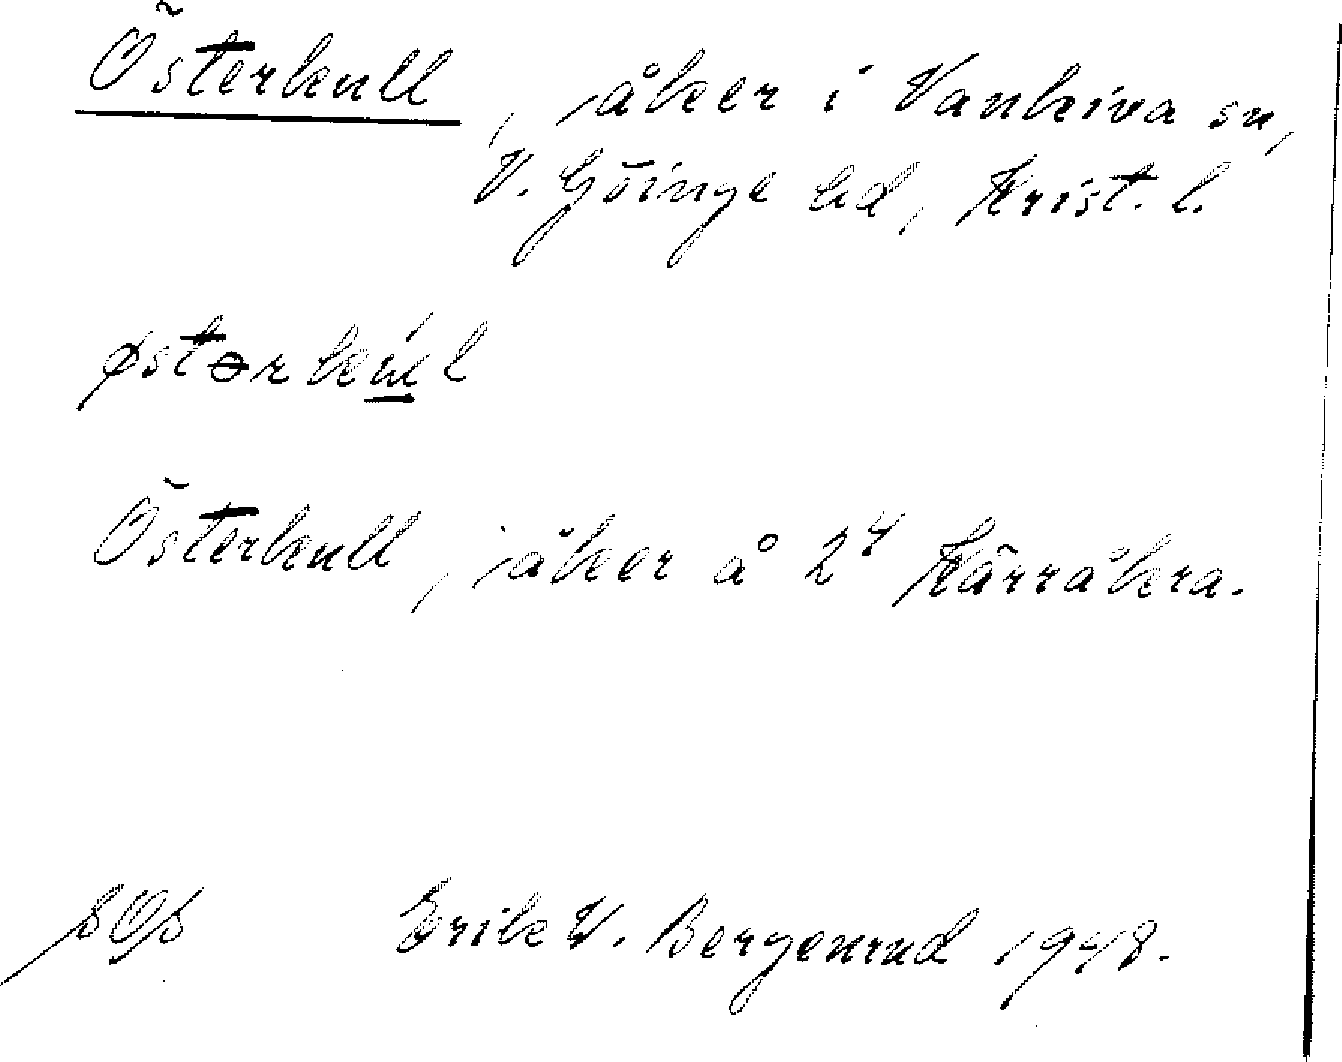 Österkull, åker i Vankiva sn,
V. Göinge hd, Krist. l.
østərkúl
Österkull, åker å 2⁴ Kärråkra.
SOS Erik W. Bergenrud 1948.